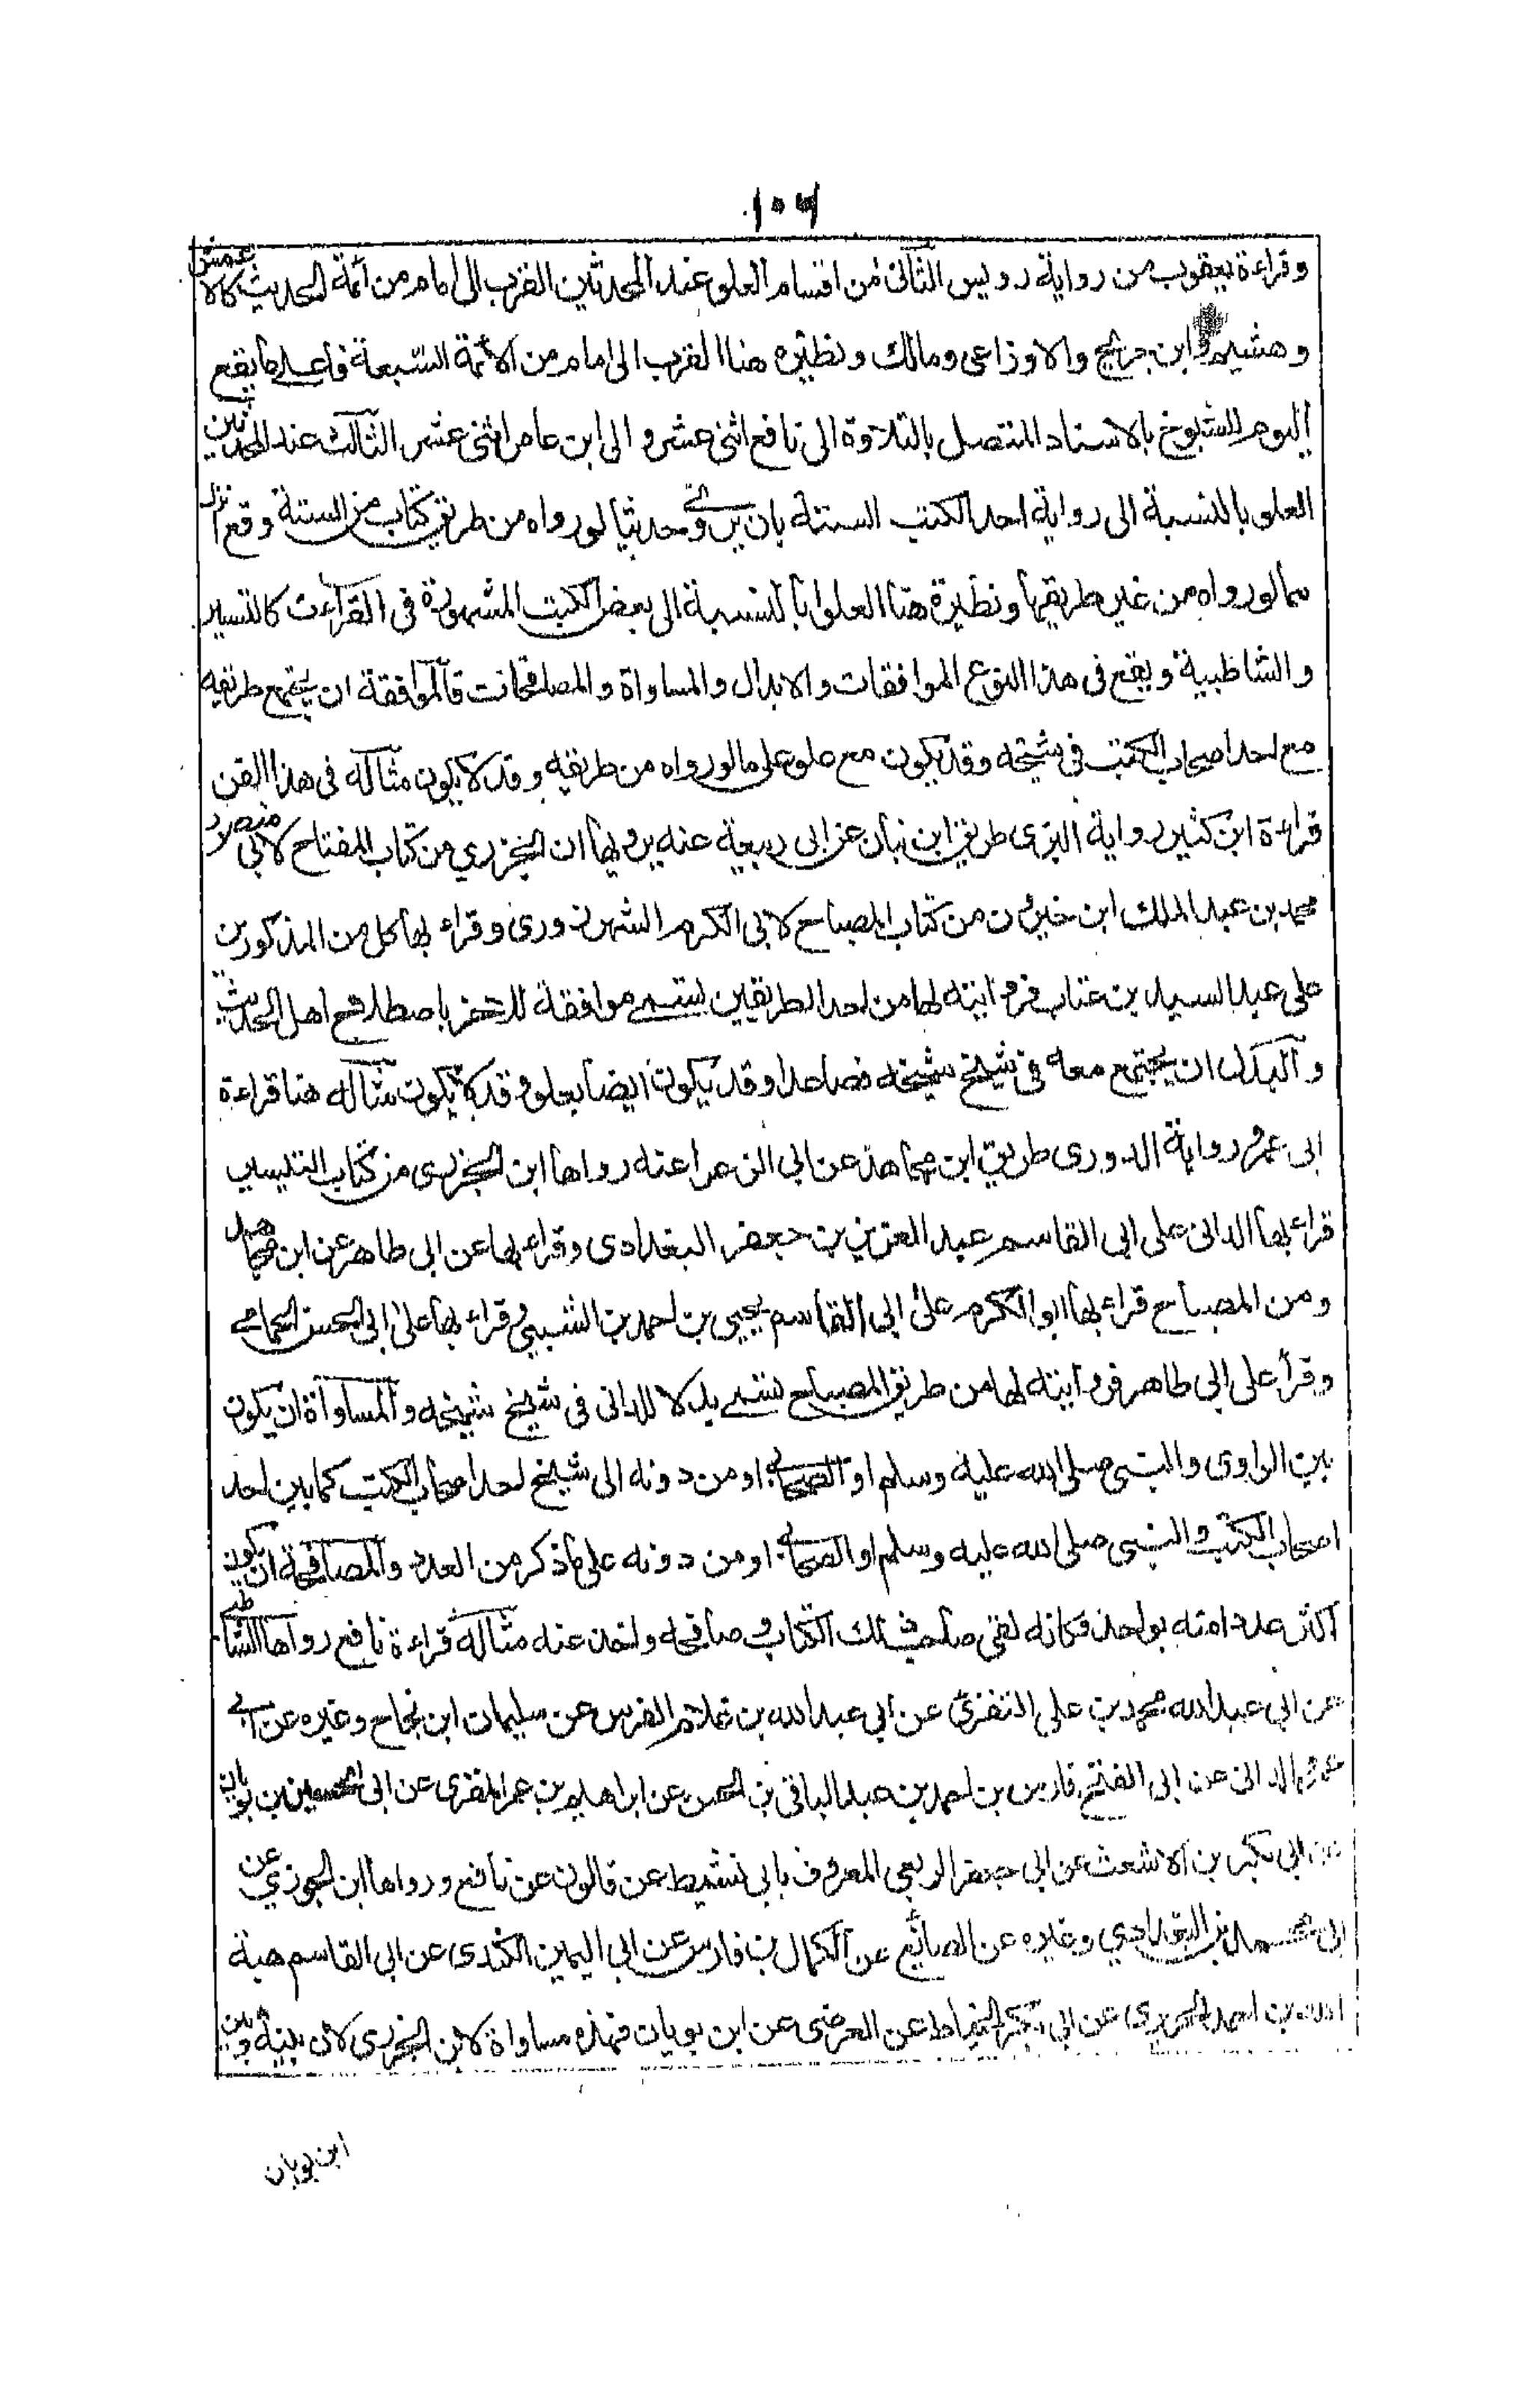 ١٠٦
وقراءة يعقوب من رواية رويس الثانى من اقسام العلو عند المحدثين القرب الى امام من ائمة الحديث كالاعمش
وهشيم وابن جريج والاوزاعى ومالك ونظيره هنا القرب الى امام من الائمة السبعة فاعلى ما يقع
اليوم للشيوخ بالاسناد المتصل بالتلاوة الى نافع اثنى عشر والى ابن عامر اثنى عشر الثالث عند المحدثين
العلو بالنسبة الى رواية احد الكتب الستة بان يروى حديثا لو رواه من طريق كتاب من الستة وقع انزل
مما لو رواه من غير طريقها ونظيره هنا العلو بالنسبة الى بعض الكتب المشهورة فى القراءت كالتيسير
والشاطبية ويقع فى هذا النوع الموافقات والابدال والمساواة والمصافحات فالموافقة ان يجتمع طريقه
مع احد اصحاب الكتب فى شيخه وقد يكون مع علو على ما لو رواه من طريقه وقد لا يكون مثاله فى هذا الفن
قراءة ابن كثير رواية البزى طريق ابن بنان عن ابى ربيعة عنه يرويها ابن الجزري من كتاب المفتاح لابى منصور
محمد بن عبد الملك ابن خيرون ومن كتاب المصباح لابى الكرم الشهرزورى وقراء بها كل من المذكورين
على عبد السيد بن عتاب فروايته لها من احد الطريقين تسمى موافقة للاخر باصطلاح اهل الحديث
والبدل ان يجتمع معه فى شيخ شيخه فصاعدا وقد يكون ايضا بعلو وقد لا يكون مثاله هنا قراءة
ابى عمرو رواية الدورى طريق ابن مجاهد عن ابى الزعراء عنه رواها ابن الجزرى من كتاب التيسير
قراء بها الدانى على ابى القاسم عبد العزيز بن جعفر البغدادى وقراء بها عن ابى طاهر عن ابن مجاهد
ومن المصباح قراء بها ابو الكرم على ابى القاسم يحيى بن احمد بن الشبيبي وقراء بها على ابى الحسن الحمامى
وقرأ على ابى طاهر فروايته لها من طريق المصباح تسمى بدلا للدانى فى شيخ شيخه والمساواة ان يكون
بين الراوى والنبى صلى الله عليه وسلم او الصحابى او من دونه الى شيخ احد اصحاب الكتب كما بين احد
اصحاب الكتب والنبى صلى الله عليه وسلم او الصحابى او من دونه على ما ذكر من العدد والمصافحة ان يكون
اكثر عددا منه بواحد فكانه لقى صاحب ذلك الكتاب وصافحه واخذ عنه مثاله قراءة نافع رواها الشاطبى
عن ابى عبد الله محمد بن على النفزى عن ابى عبد الله بن غلام الفرس عن سليمان ابن نجاح وغيره عن ابى
عمرو الدانى عن ابى الفتح فارس بن احمد بن عبد الباقى بن الحسن عن ابراهيم بن عمر المقرى عن ابى الحسين بن بويان
عن ابى بكر بن الاشعث عن ابى جعفر الربعى المعروف بابى نشيط عن قالون عن نافع ورواها ابن الجوزي عن
ابى محمد بن البغدادي وغيره عن الصائغ عن الكمال بن فارس عن ابى اليمين الكندى عن ابى القاسم هبة
الله بن احمد الحريرى عن ابى بكر الخياط عن الفرضى عن ابن بويان فهذه مساواة لابن الجزرى لان بينه وبين
ابن بويان